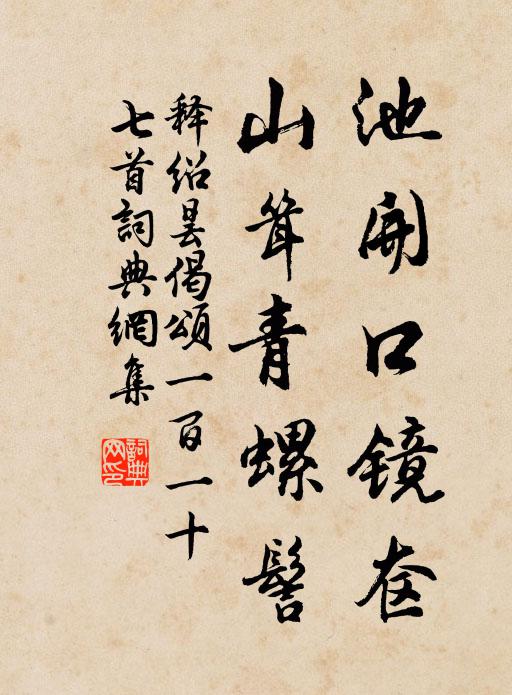 池开口镜奁
山耸青螺髻
释绍昙偈颂一百一十
七首詞典網集
詞典网印